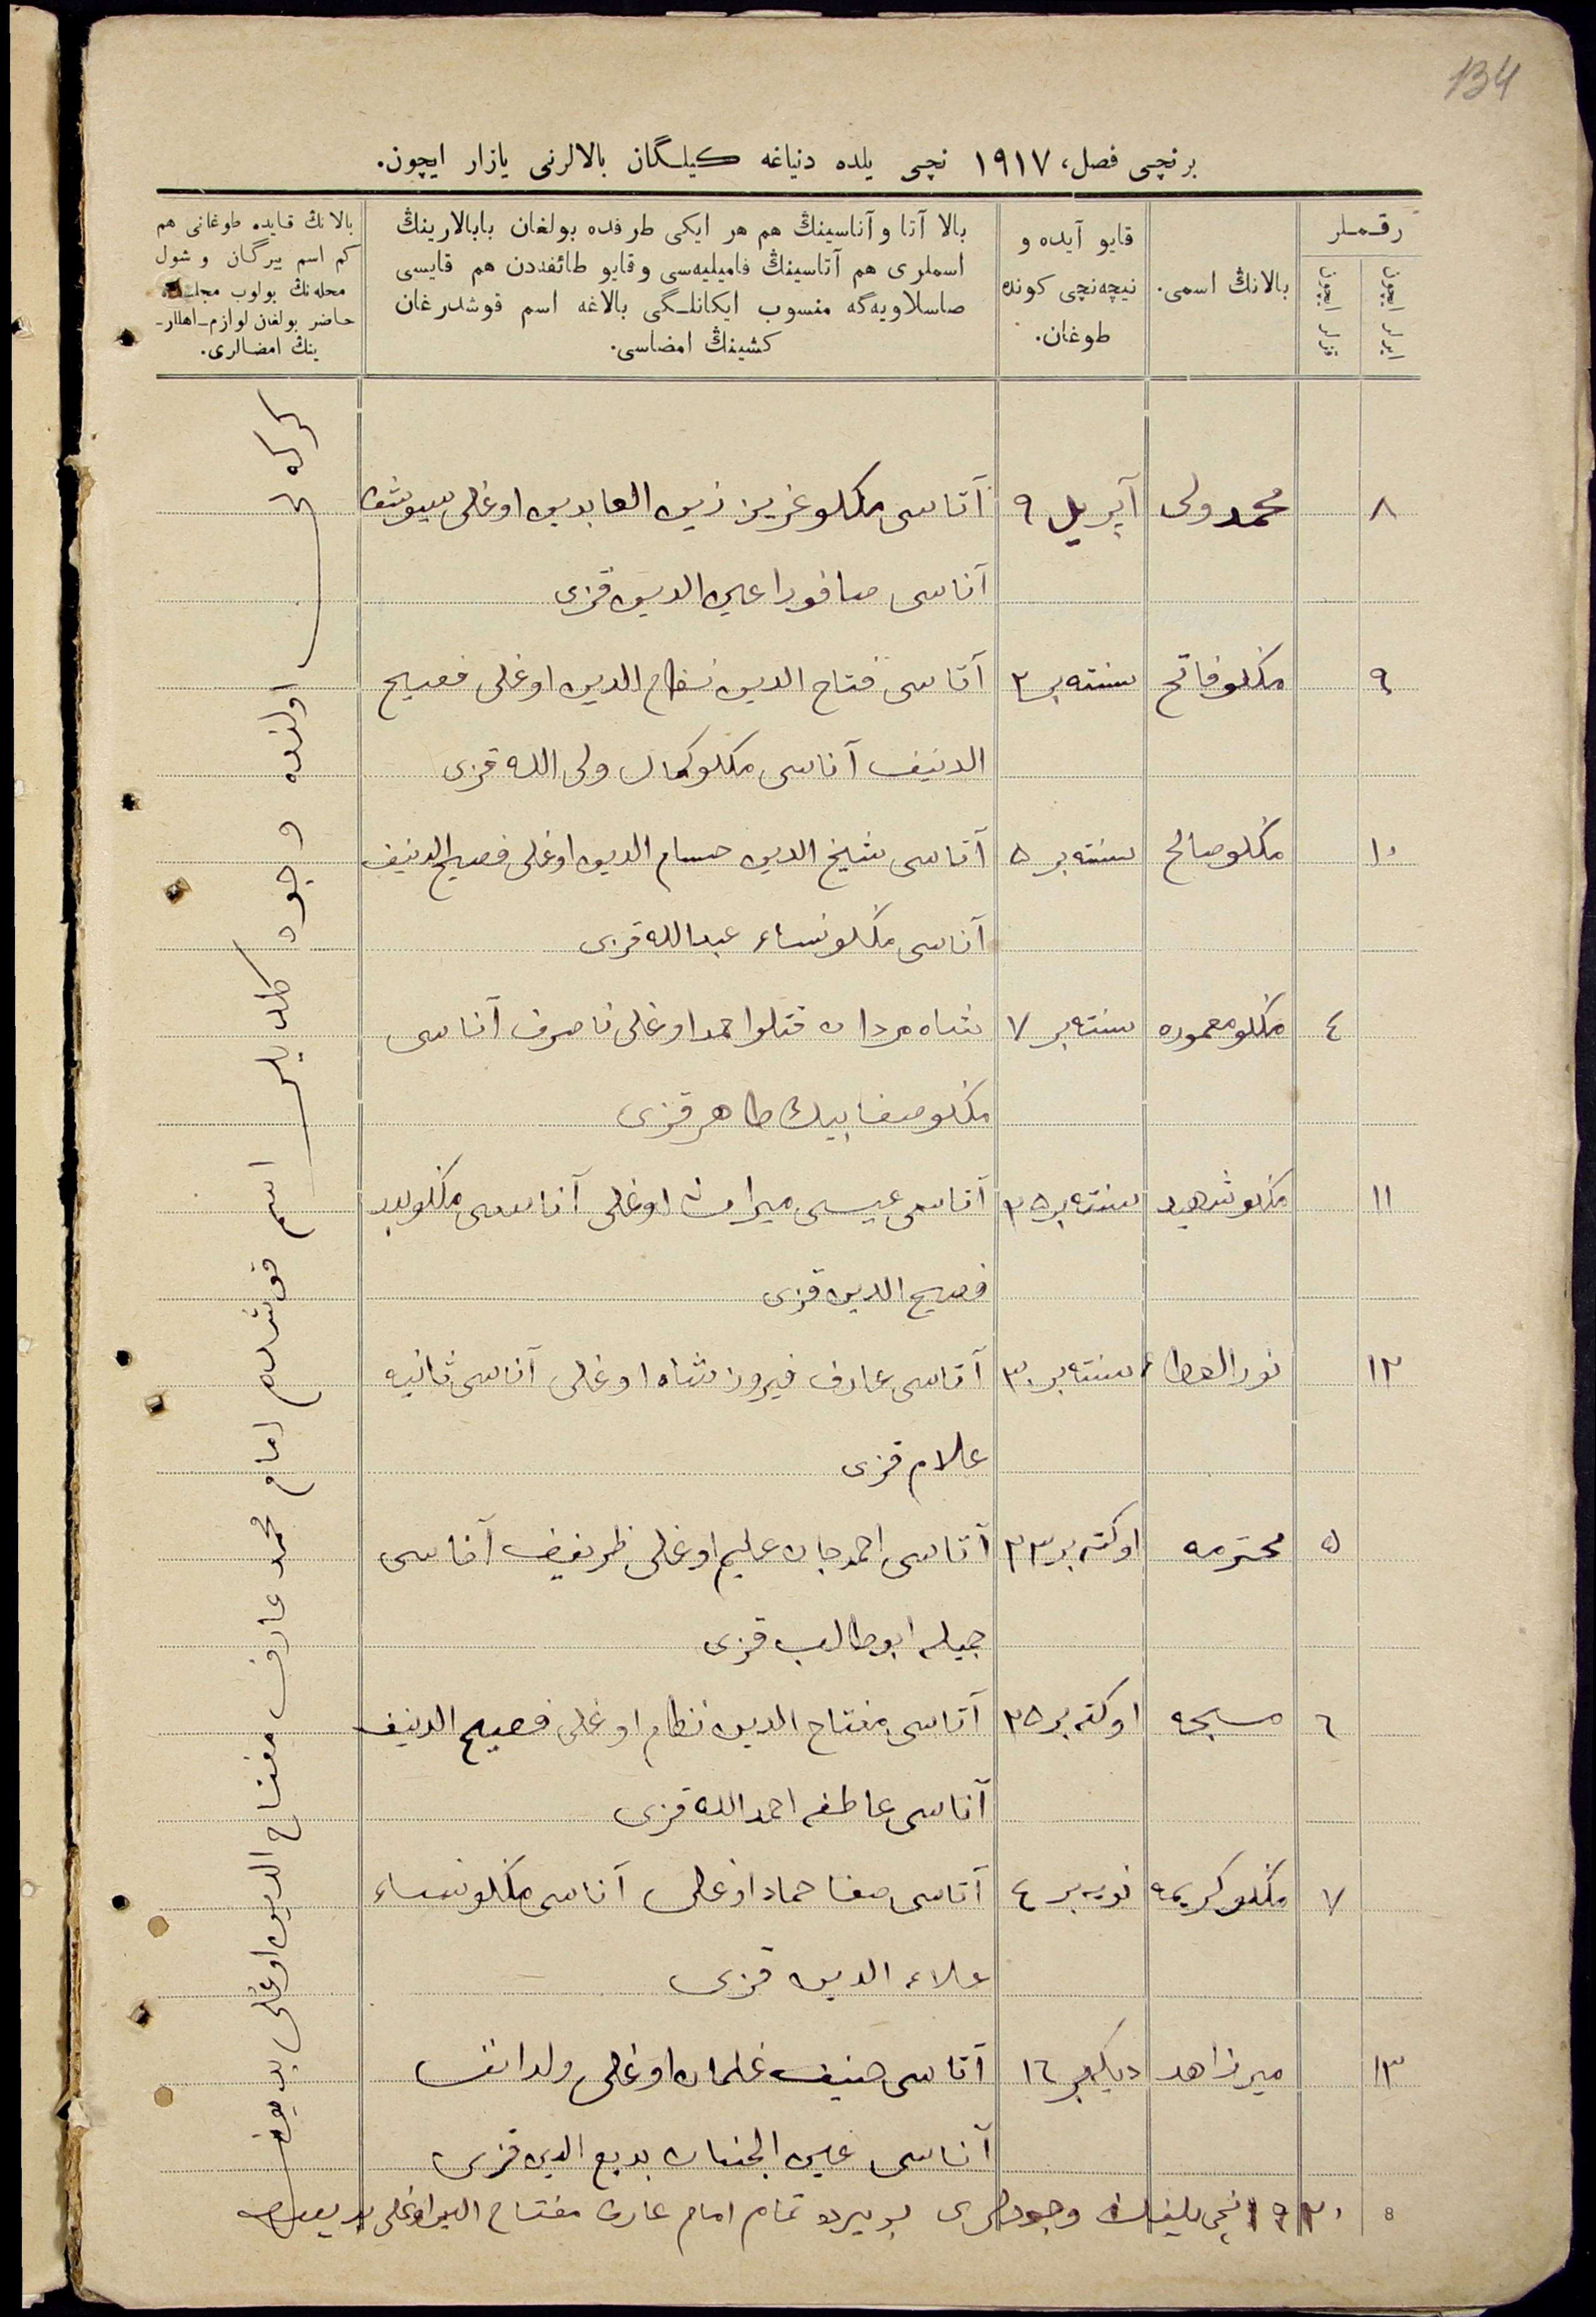 134
برنچی فصل، ۱۹۱۷ نچی یلده دنیاغه کیلگان بالالرنی یازار ایچون.
رقملر
ایرلر ایچون
قزلر ایچون
بالانڭ اسمی.
قایو آیده و
نیچه‌نچی کونده
طوغان.
بالا آتا و آناسینڭ هم هر ایکی طرفده بولغان بابالارینڭ
اسملری هم آتاسینڭ فامیلیه‌سی و قایو طائفه‌دن هم قایسی
صاسلاویه‌گه منسوب ایکانلگی بالاغه اسم قوشدرغان
کشینڭ امضاسی.
بالانڭ قایده طوغانی هم
کم اسم بیرگان و شول
محله‌نڭ بولوب مجلسده
حاضر بولغان لوازم اهللار
ینڭ امضالری.
۸ محمد ولی آپریل ۹ آتاسی منکلو عزیز زین العابدین اوغلی
آناسی صافورا عین الدین قزی
۹ منکلو فاتح سنتەبر ۲ آتاسی فتاح الدین نظام الدین اوغلی فصیح
الدنیف آناسی منکلو کمال ولی الله قزی
۱۰ منکلو صالح سنتەبر ۵ آتاسی شیخ الدین حسام الدین اوغلی فصیح الدنیف
آناسی منکلو نساء عبدالله قزی
٤ منکلو معموره سنتەبر ۷ شاه مردان قتلو احمد اوغلی ناصرف آناسی
منکلو صفا بیك طاهر قزی
۱۱ منکلو شهید سنتەبر ۲۵ آتاسی عیسی میران اوغلی آناسی منکلو
فصیح الدین قزی
۱۲ نور العطا سنتەبر ۳۰ آتاسی عارف فیروز شاه اوغلی آناسی ثانیه
علام قزی
۵ محترمه اوکتەبر ۲۳ آتاسی احمد جان علیم اوغلی ظریفیف آناسی
جمیله ابو طالب قزی
٦ اوکتەبر ۲۵ آتاسی مفتاح الدین نظام اوغلی فصیح الدنیف
آناسی عاطفه احمد الله قزی
۷ منکلو کریمه نویەبر ٤ آتاسی صفا حماد اوغلی آناسی منکلو نساء
علاء الدین قزی
۱۳ میر زاهد دیکەبر ۱٦ آتاسی حنیف غلمان اوغلی ولدانف
آناسی عین الجنان بدیع الدین قزی
نچی وجودلری بو یرده تمام امام عارف مفتاح الدین اوغلی
اولنده وجود اسم قوشدم امام محمد عارف مفتاح الدین اوغلی